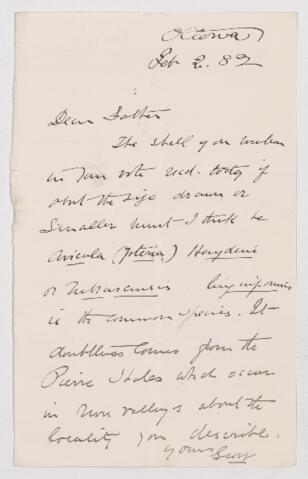 Ottawa
Feb 2. 82
Dear Father
The shell you mention
in your note recd. today if
about the size drawn or
smaller must I think be
Avicula (Pteria) Haydeni
or Nebrascensis. linguiformis
is the common species. It
doubtless comes from the
Pierre Shales which occur
in river valleys about the
locality you describe.
yours
George